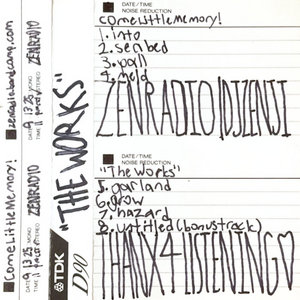 DATE/TIME
NOISE REDUCTION
come little memory!
1. into
2. seabed
3. pall
4. held
ZENRADIO/DJZENJI
DATE/TIME
NOISE REDUCTION
"The Works"
5. garland
6. grow
7. hazard
8. untitled (bonus track)
THANX 4 LISTENING♡
"THE WORKS"
TDK
D90
zenradio.bandcamp.com
9.13.25
ZENRADIO
come little memory!
9.13.25
ZENRADIO